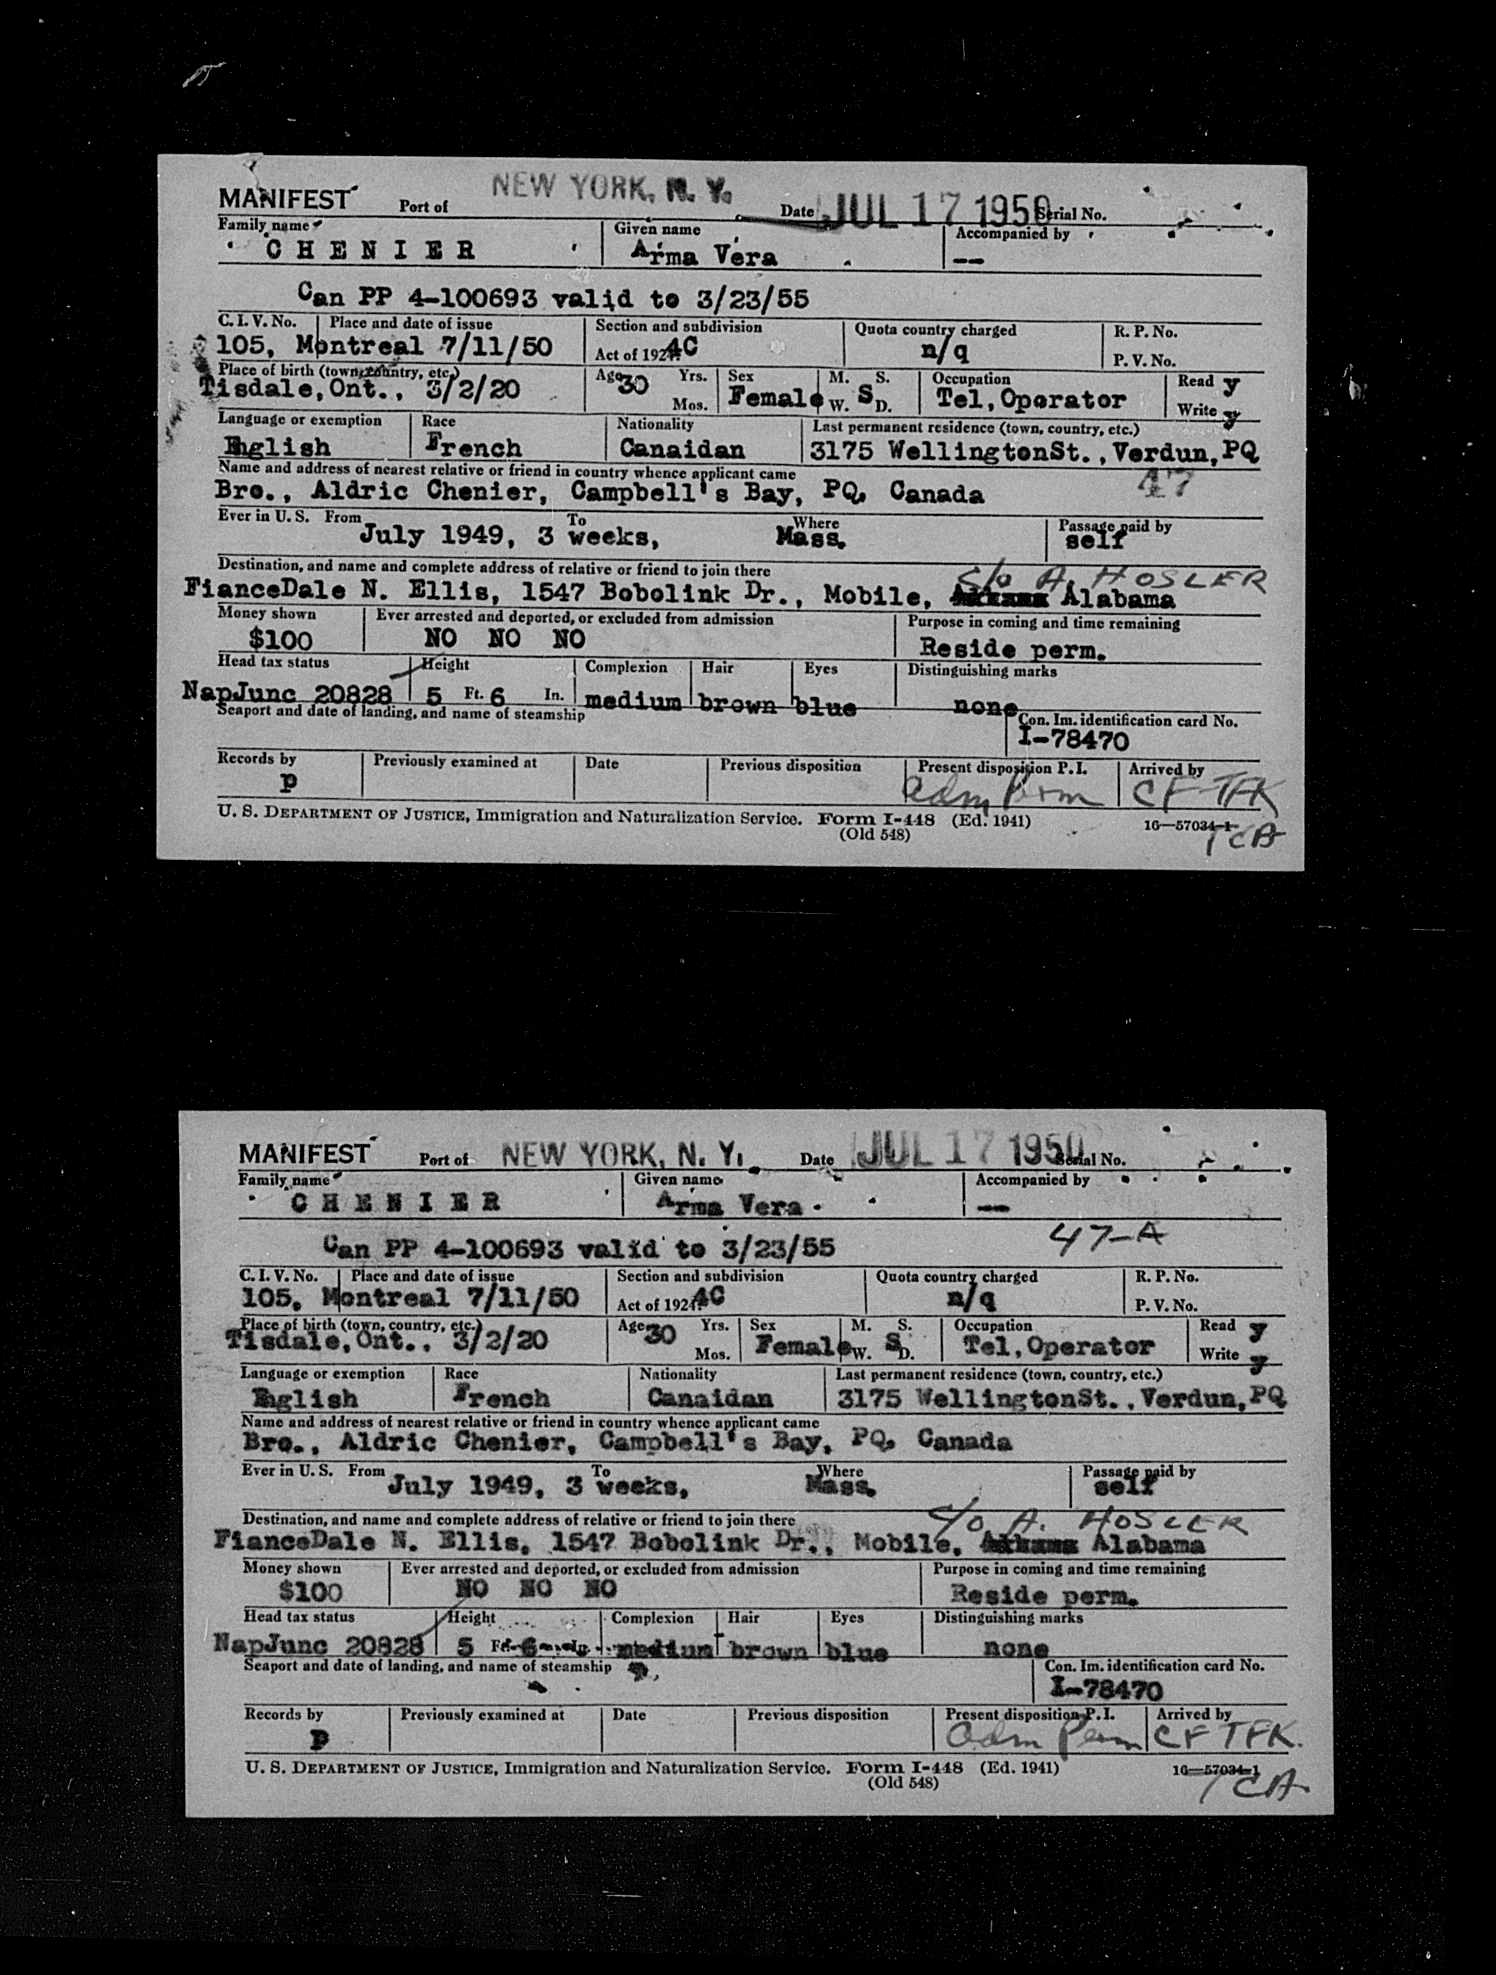 MANIFEST Port of NEW YORK, N. Y. Date JUL 17 1950 Serial No.
Family name Given name Accompanied by
CHENIER Arma Vera --
Can PP 4-100693 valid to 3/23/55
C. I. V. No. Place and date of issue Section and subdivision Quota country charged R. P. No.
105, Montreal 7/11/50 Act of 1924 4C n/q P. V. No.
Place of birth (town, country, etc.) Age 30 Yrs. Sex M. S. Occupation Read y
Tisdale, Ont., 3/2/20 Mos. Female W. S D. Tel, Operator Write y
Language or exemption Race Nationality Last permanent residence (town, country, etc.)
English French Canaidan 3175 WellingtonSt., Verdun, PQ
Name and address of nearest relative or friend in country whence applicant came 47
Bro., Aldric Chenier, Campbell's Bay, PQ, Canada
Ever in U. S. From To Where Passage paid by
July 1949, 3 weeks, Mass. self
Destination, and name and complete address of relative or friend to join there c/o A. HOSLER
FianceDale N. Ellis, 1547 Bobolink Dr., Mobile, Alabama
Money shown Ever arrested and deported, or excluded from admission Purpose in coming and time remaining
$100 NO NO NO Reside perm.
Head tax status Height Complexion Hair Eyes Distinguishing marks
NapJunc 20828 5 Ft. 6 In. medium brown blue none
Seaport and date of landing, and name of steamship Con. Im. identification card No.
I-78470
Records by Previously examined at Date Previous disposition Present disposition P. I. Arrived by
p adm Perm CF TFK
U. S. DEPARTMENT OF JUSTICE, Immigration and Naturalization Service. Form I-448 (Ed. 1941) 16—57034-1
(Old 548) TCA
MANIFEST Port of NEW YORK, N. Y. Date JUL 17 1950 Serial No.
Family name Given name Accompanied by
CHENIER Arma Vera --
Can PP 4-100693 valid to 3/23/55 47-A
C. I. V. No. Place and date of issue Section and subdivision Quota country charged R. P. No.
105, Montreal 7/11/50 Act of 1924 4C n/q P. V. No.
Place of birth (town, country, etc.) Age 30 Yrs. Sex M. S. Occupation Read y
Tisdale, Ont., 3/2/20 Mos. Female W. S D. Tel, Operator Write y
Language or exemption Race Nationality Last permanent residence (town, country, etc.)
English French Canaidan 3175 WellingtonSt., Verdun, PQ
Name and address of nearest relative or friend in country whence applicant came
Bro., Aldric Chenier, Campbell's Bay, PQ, Canada
Ever in U. S. From To Where Passage paid by
July 1949, 3 weeks, Mass. self
Destination, and name and complete address of relative or friend to join there c/o A. HOSLER
FianceDale N. Ellis, 1547 Bobolink Dr., Mobile, Alabama
Money shown Ever arrested and deported, or excluded from admission Purpose in coming and time remaining
$100 NO NO NO Reside perm.
Head tax status Height Complexion Hair Eyes Distinguishing marks
NapJunc 20828 5 Ft. 6 In. medium brown blue none
Seaport and date of landing, and name of steamship Con. Im. identification card No.
I-78470
Records by Previously examined at Date Previous disposition Present disposition P. I. Arrived by
p adm Perm CF TFK.
U. S. DEPARTMENT OF JUSTICE, Immigration and Naturalization Service. Form I-448 (Ed. 1941) 16—57034-1
(Old 548) TCA